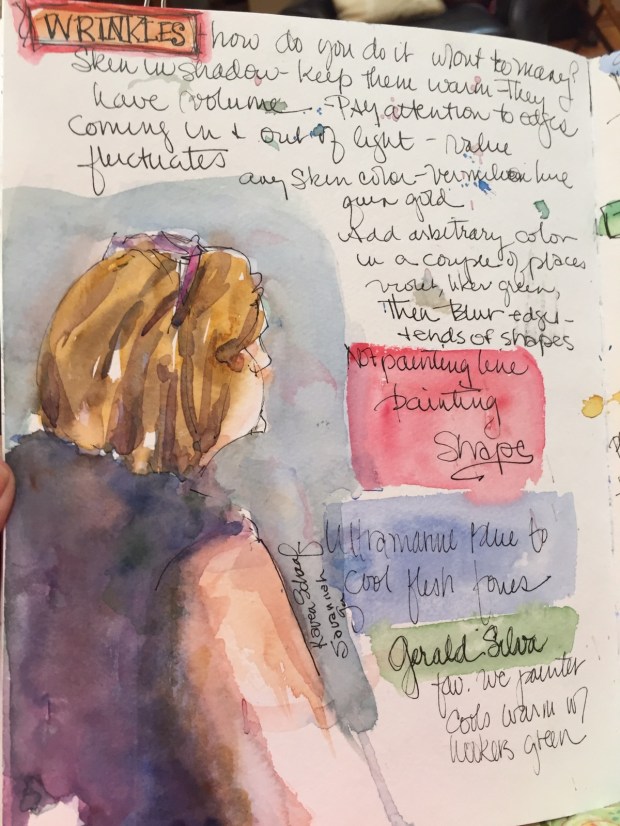 WRINKLES - how do you do it w/out to many?
Skin in shadow - keep them warm - They
have volume. Pay attention to edges
coming in & out of light - value
fluctuates
any skin color - vermillion blue
quin gold
Add arbitrary color
in a couple of places
violet, blue green,
Then Blur edge -
+ ends of shapes
Not painting line
painting
Shape
Ultramarine blue to
cool flesh tones
Gerald Silva
fav. wc painter
cools warm w/
hookers green
Savannah